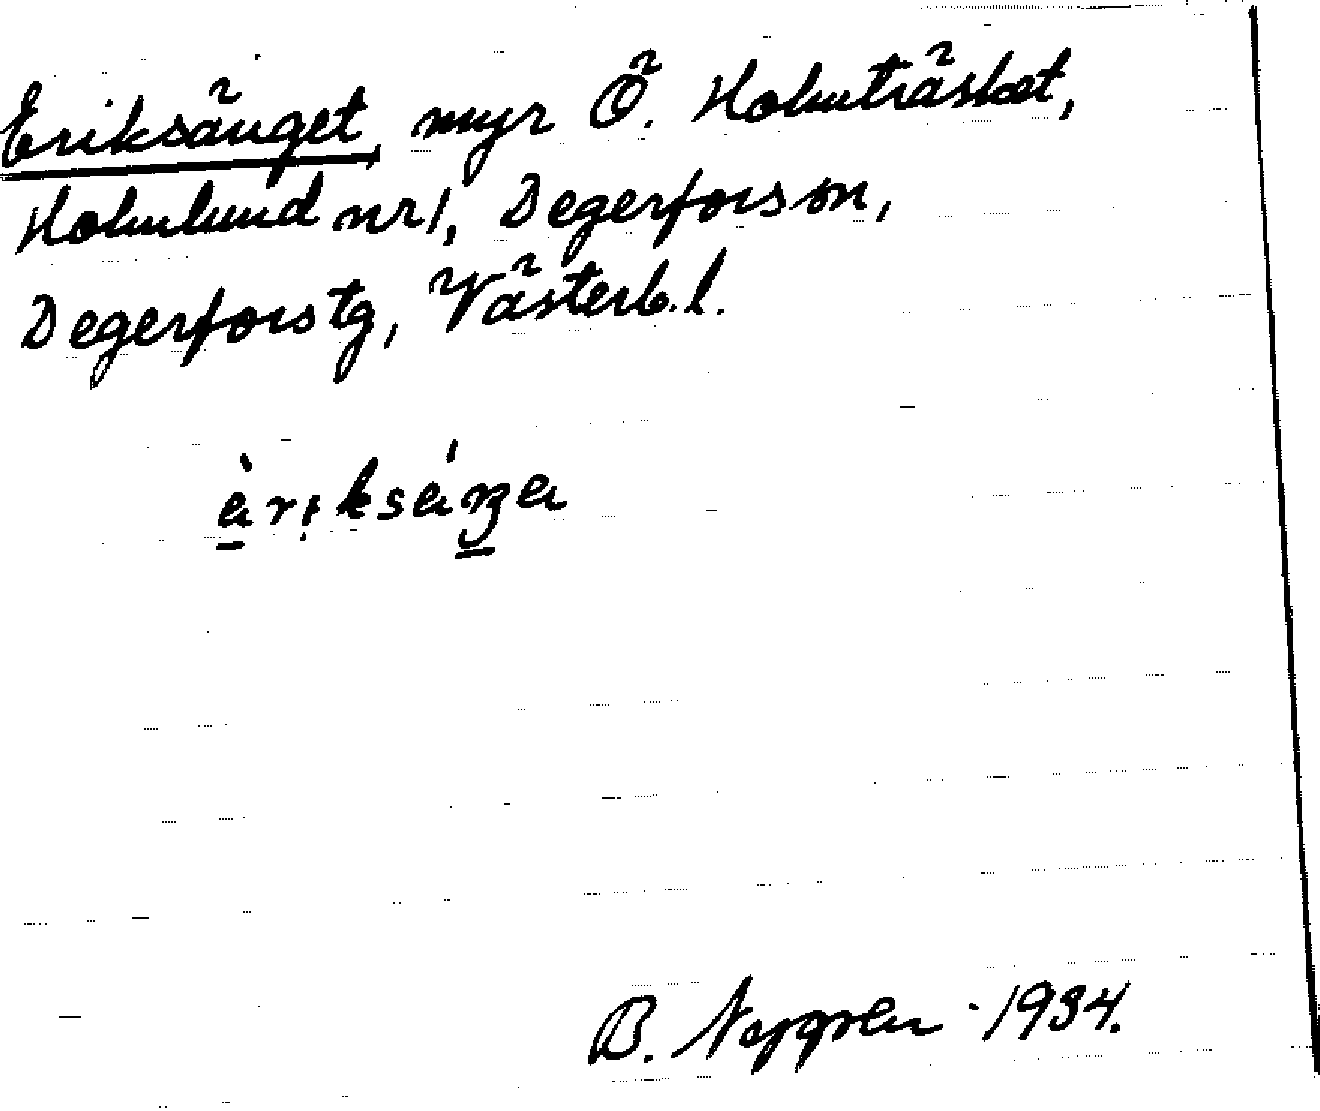 Eriksänget, myr Ö. Holmträsket,
Holmlund nr 1, Degerfors sn,
Degerfors tg, Västerb. l.
àriksáŋa
B. Nygren 1934.